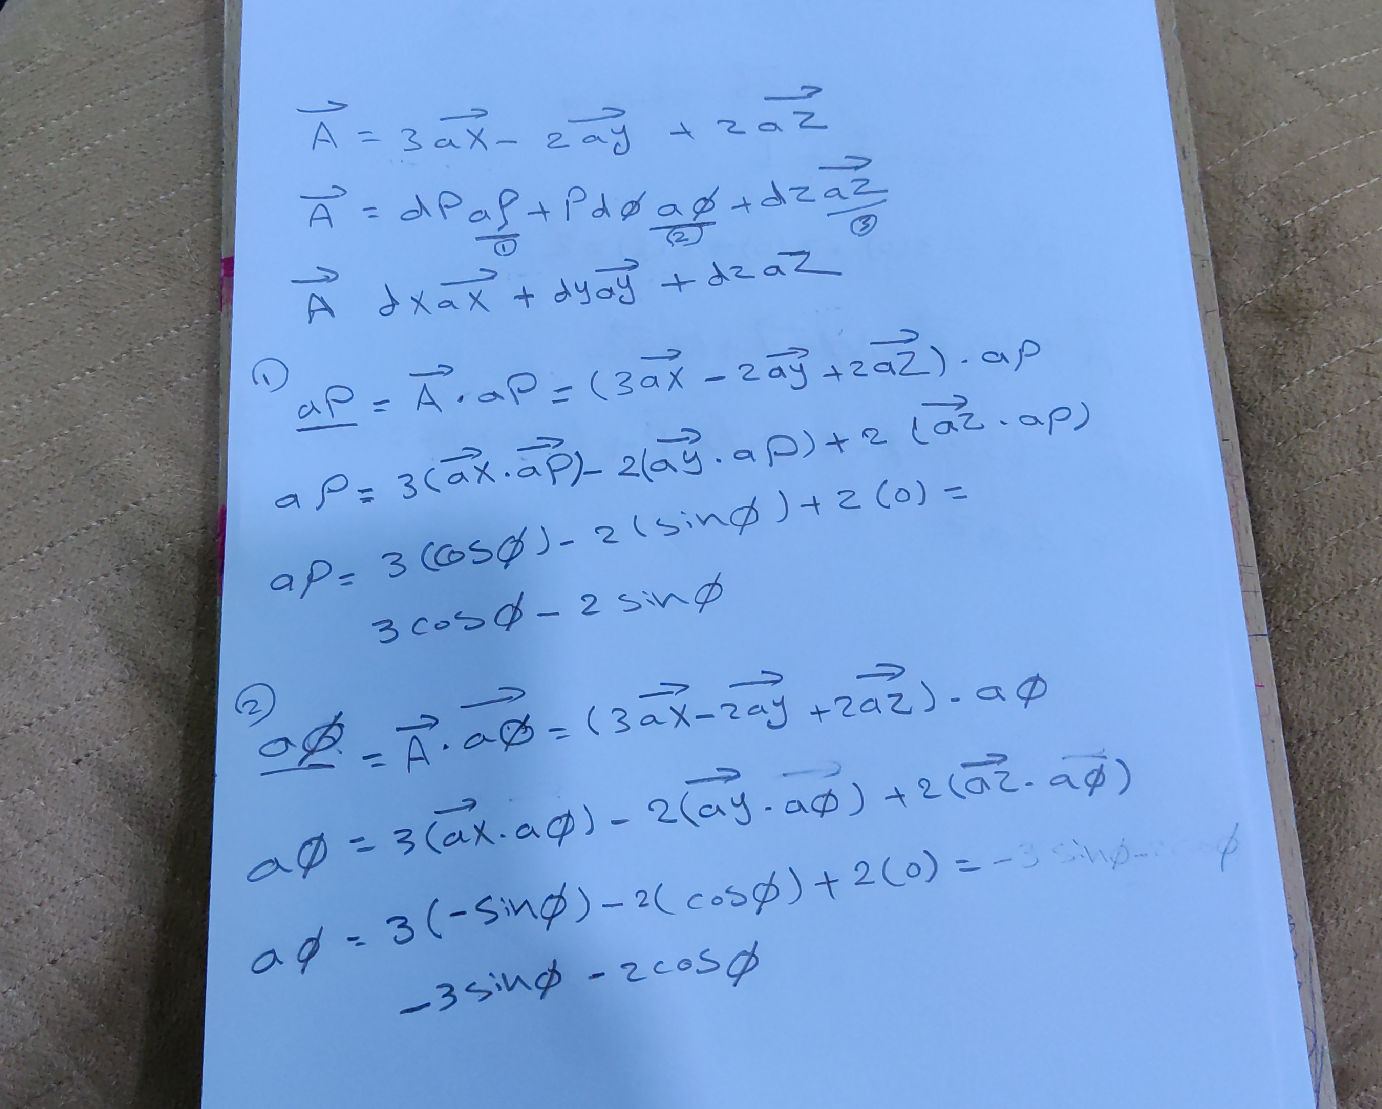 A⃗ = 3a⃗x - 2a⃗y + 2a⃗z
A⃗ = dρ aρ + ρdφ aφ + dz a⃗z
① ② ③
A⃗ dx a⃗x + dy a⃗y + dz a⃗z
① aρ = A⃗ . aρ = (3a⃗x - 2a⃗y + 2a⃗z) . aρ
aρ = 3(a⃗x . a⃗ρ) - 2(a⃗y . aρ) + 2 (a⃗z . aρ)
aρ = 3 (cosφ) - 2 (sinφ) + 2 (0) =
3 cosφ - 2 sinφ
② aφ = A⃗ . a⃗φ = (3a⃗x - 2a⃗y + 2a⃗z) . aφ
aφ = 3(a⃗x . aφ) - 2(a⃗y . a⃗φ) + 2(a⃗z . a⃗φ)
aφ = 3(-sinφ) - 2( cosφ) + 2(0) = -3 sinφ - φ
-3 sinφ - 2 cosφ